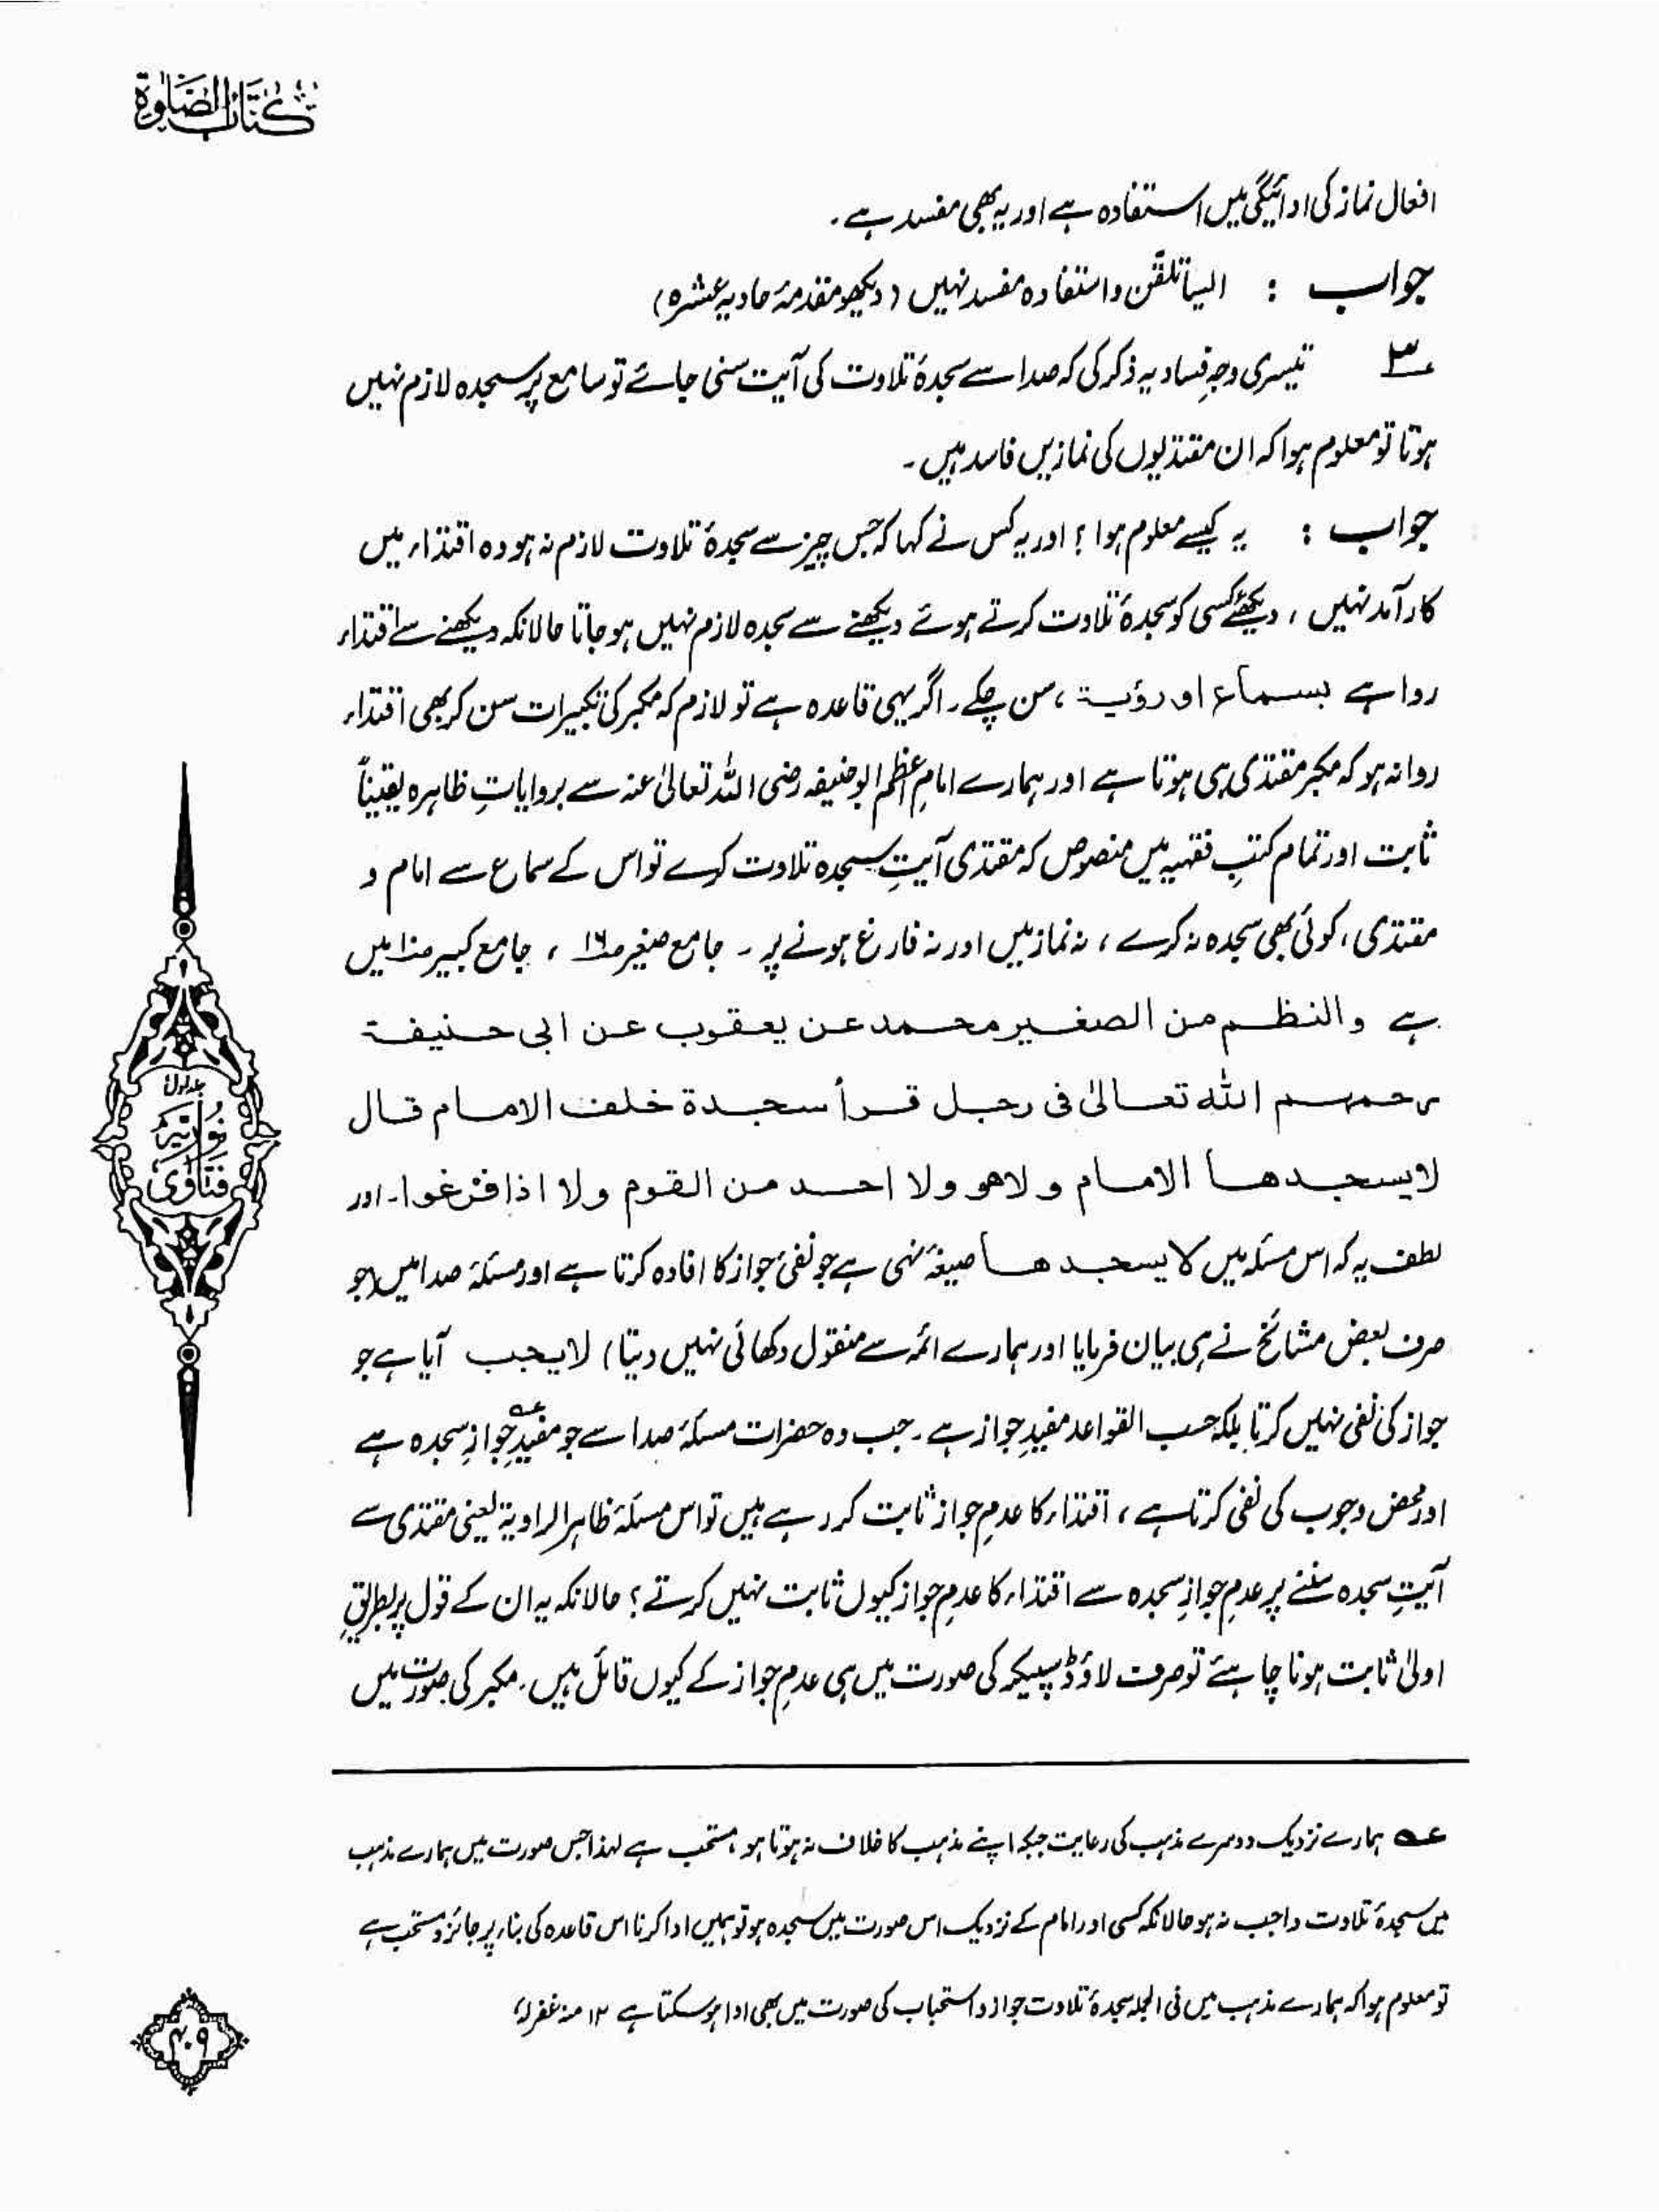 كتاب الصلوة
افعال نماز کی ادائیگی میں استفادہ ہے اور یہ بھی مفسد ہے ۔
جواب : ایسا تلقّن و استفادہ مفسد نہیں (دیکھو مقدمۂ حادیہ عشرہ)
۳ تیسری وجہِ فساد یہ ذکر کی کہ صدا سے سجدۂ تلاوت کی آیت سنی جائے تو سامع پر سجدہ لازم نہیں
ہوتا تو معلوم ہوا کہ ان مقتدیوں کی نمازیں فاسد ہیں ۔
جواب : یہ کیسے معلوم ہوا ؟ اور یہ کس نے کہا کہ جس چیز سے سجدۂ تلاوت لازم نہ ہو وہ اقتداء میں
کارآمد نہیں ، دیکھئے کسی کو سجدۂ تلاوت کرتے ہوئے دیکھنے سے سجدہ لازم نہیں ہو جاتا حالانکہ دیکھنے سے اقتداء
روا ہے بسماع او رؤیۃ ، سن چکے ۔ اگر یہی قاعدہ ہے تو لازم کہ مکبر کی تکبیرات سن کر بھی اقتداء
روا نہ ہو کہ مکبر مقتدی ہی ہوتا ہے اور ہمارے امامِ اعظم ابو حنیفہ رضی اللہ تعالیٰ عنہ سے بروایاتِ ظاہرہ یقیناً
ثابت اور تمام کتبِ فقہیہ میں منصوص کہ مقتدی آیتِ سجدہ تلاوت کرے تو اس کے سماع سے امام و
مقتدی ، کوئی بھی سجدہ نہ کرے ، نہ نماز میں اور نہ فارغ ہونے پر ۔ جامع صغیر ص۱۶ ، جامع کبیر ص۱۰ میں
ہے والنظم من الصغیر محمد عن یعقوب عن ابی حنیفۃ
رحمہم اللہ تعالیٰ فی رجل قرأ سجدۃ خلف الامام قال
لا یسجدھا الامام ولا ھو ولا احد من القوم ولا اذا فرغوا ۔ اور
لطف یہ کہ اس مسئلہ میں لا یسجدھا صیغۂ نہی ہے جو نفیٔ جواز کا افادہ کرتا ہے اور مسئلۂ صدا میں (جو
صرف بعض مشائخ نے ہی بیان فرمایا اور ہمارے ائمہ سے منقول دکھائی نہیں دیتا) لا یجب آیا ہے جو
جواز کی نفی نہیں کرتا بلکہ حسب القواعد مفیدِ جواز ہے ۔ جب وہ حضرات مسئلۂ صدا سے جو مفیدِ جوازِ سجدہ ہے عہ
اور محض وجوب کی نفی کرتا ہے ، اقتداء کا عدمِ جواز ثابت کر رہے ہیں تو اس مسئلۂ ظاہر الراویۃ یعنی مقتدی سے
آیتِ سجدہ سننے پر عدمِ جوازِ سجدہ سے اقتداء کا عدمِ جواز کیوں ثابت نہیں کرتے ؟ حالانکہ یہ ان کے قول پر بطریقِ
اولیٰ ثابت ہونا چاہئے تو صرف لاؤڈ سپیکر کی صورت میں ہی عدمِ جواز کے کیوں قائل ہیں ۔ مکبر کی صورت میں
عہ ہمارے نزدیک دوسرے مذہب کی رعایت جبکہ اپنے مذہب کا خلاف نہ ہوتا ہو ، مستحب ہے لہٰذا جس صورت میں ہمارے مذہب
میں سجدۂ تلاوت واجب نہ ہو حالانکہ کسی اور امام کے نزدیک اس صورت میں سجدہ ہو تو ہمیں ادا کرنا اس قاعدہ کی بناء پر جائز و مستحب ہے
تو معلوم ہوا کہ ہمارے مذہب میں فی الجملہ سجدۂ تلاوت جواز و استحباب کی صورت میں بھی ادا ہو سکتا ہے ۱۲ منہ غفرلہٗ
جلد اول
نوریہ
فتاوی
۴۰۹